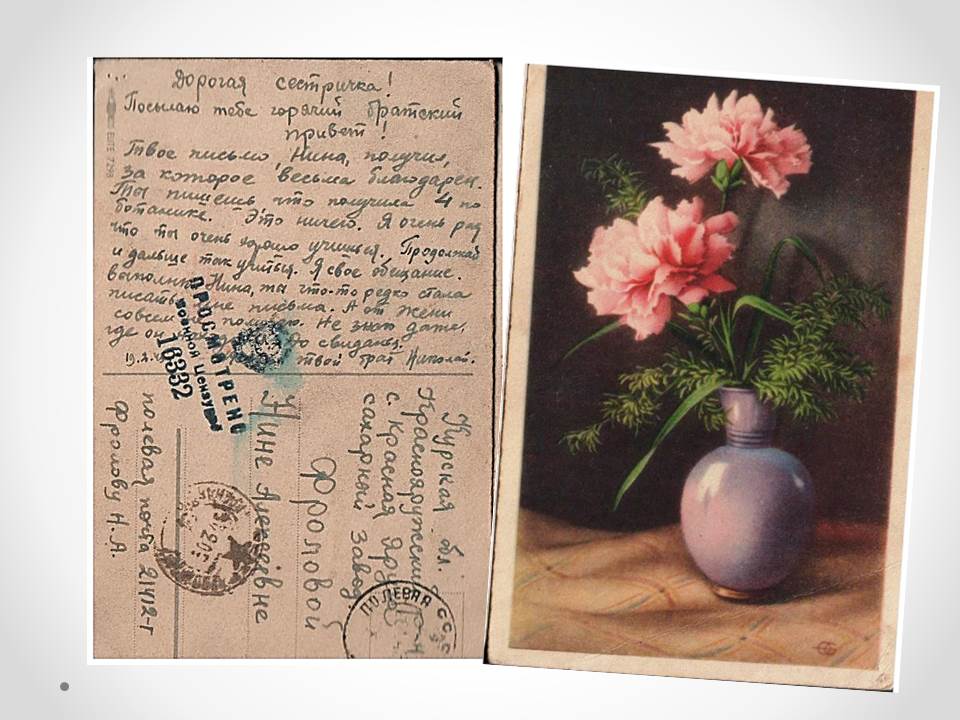 Дорогая сестричка!
Посылаю тебе горячий братский
привет!
Твое письмо, Нина, получил,
за которое весьма благодарен.
Ты пишешь что получила 4 по
ботанике. Это ничего. Я очень рад
что ты очень хорошо учишься. Продолжай
и дальше так учиться. Я свое обещание
выполню. Нина, ты что-то редко стала
писать мне письма. А от Жени
совсем не получаю. Не знаю даже,
где он До свиданья.
19.2. твой брат Николай.
ПРОСМОТРЕНО
Военной Цензурой
16332
Курская обл.
Краснояружский р-н
с. Красная Яруга
сахарный завод
Фроловой
Нине Алексеевне
полевая почта 21412-г
Фролову Н.А.
ПОЛЕВАЯ